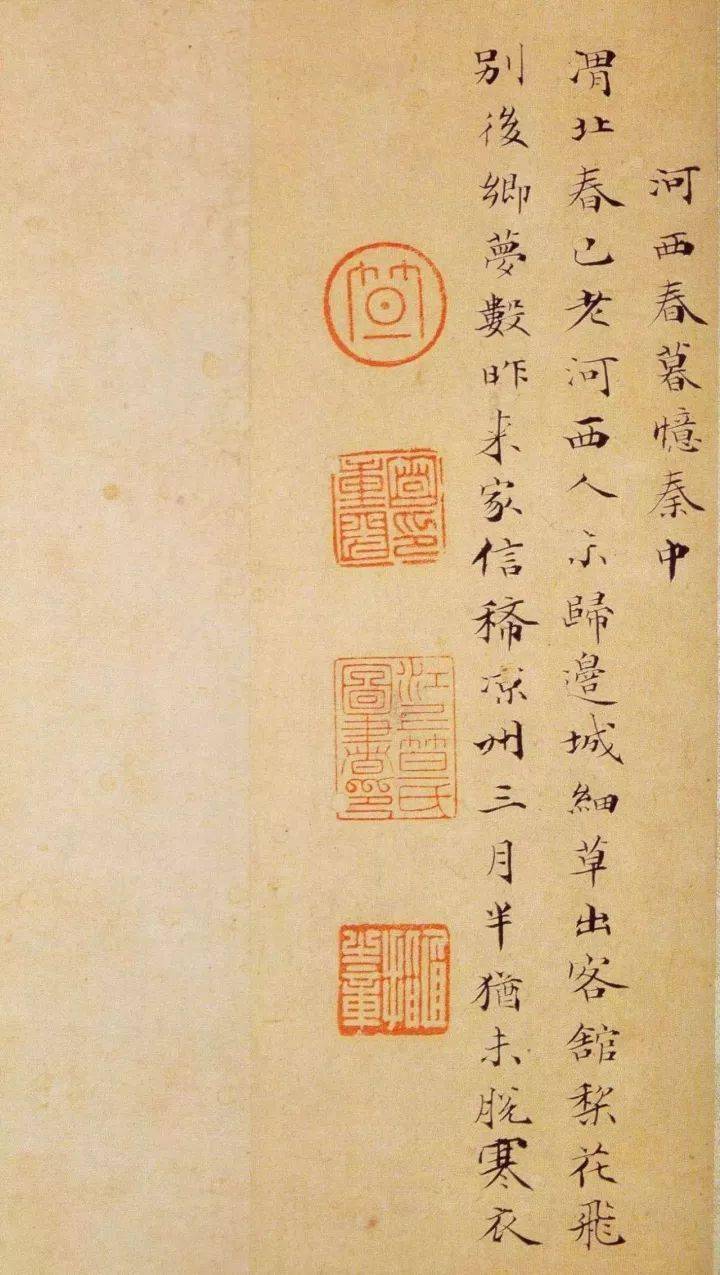 河西春暮憶秦中
渭北春已老河西人未歸邊城細草出客舘梨花飛
別後鄉夢數昨来家信稀凉州三月半猶未脫寒衣